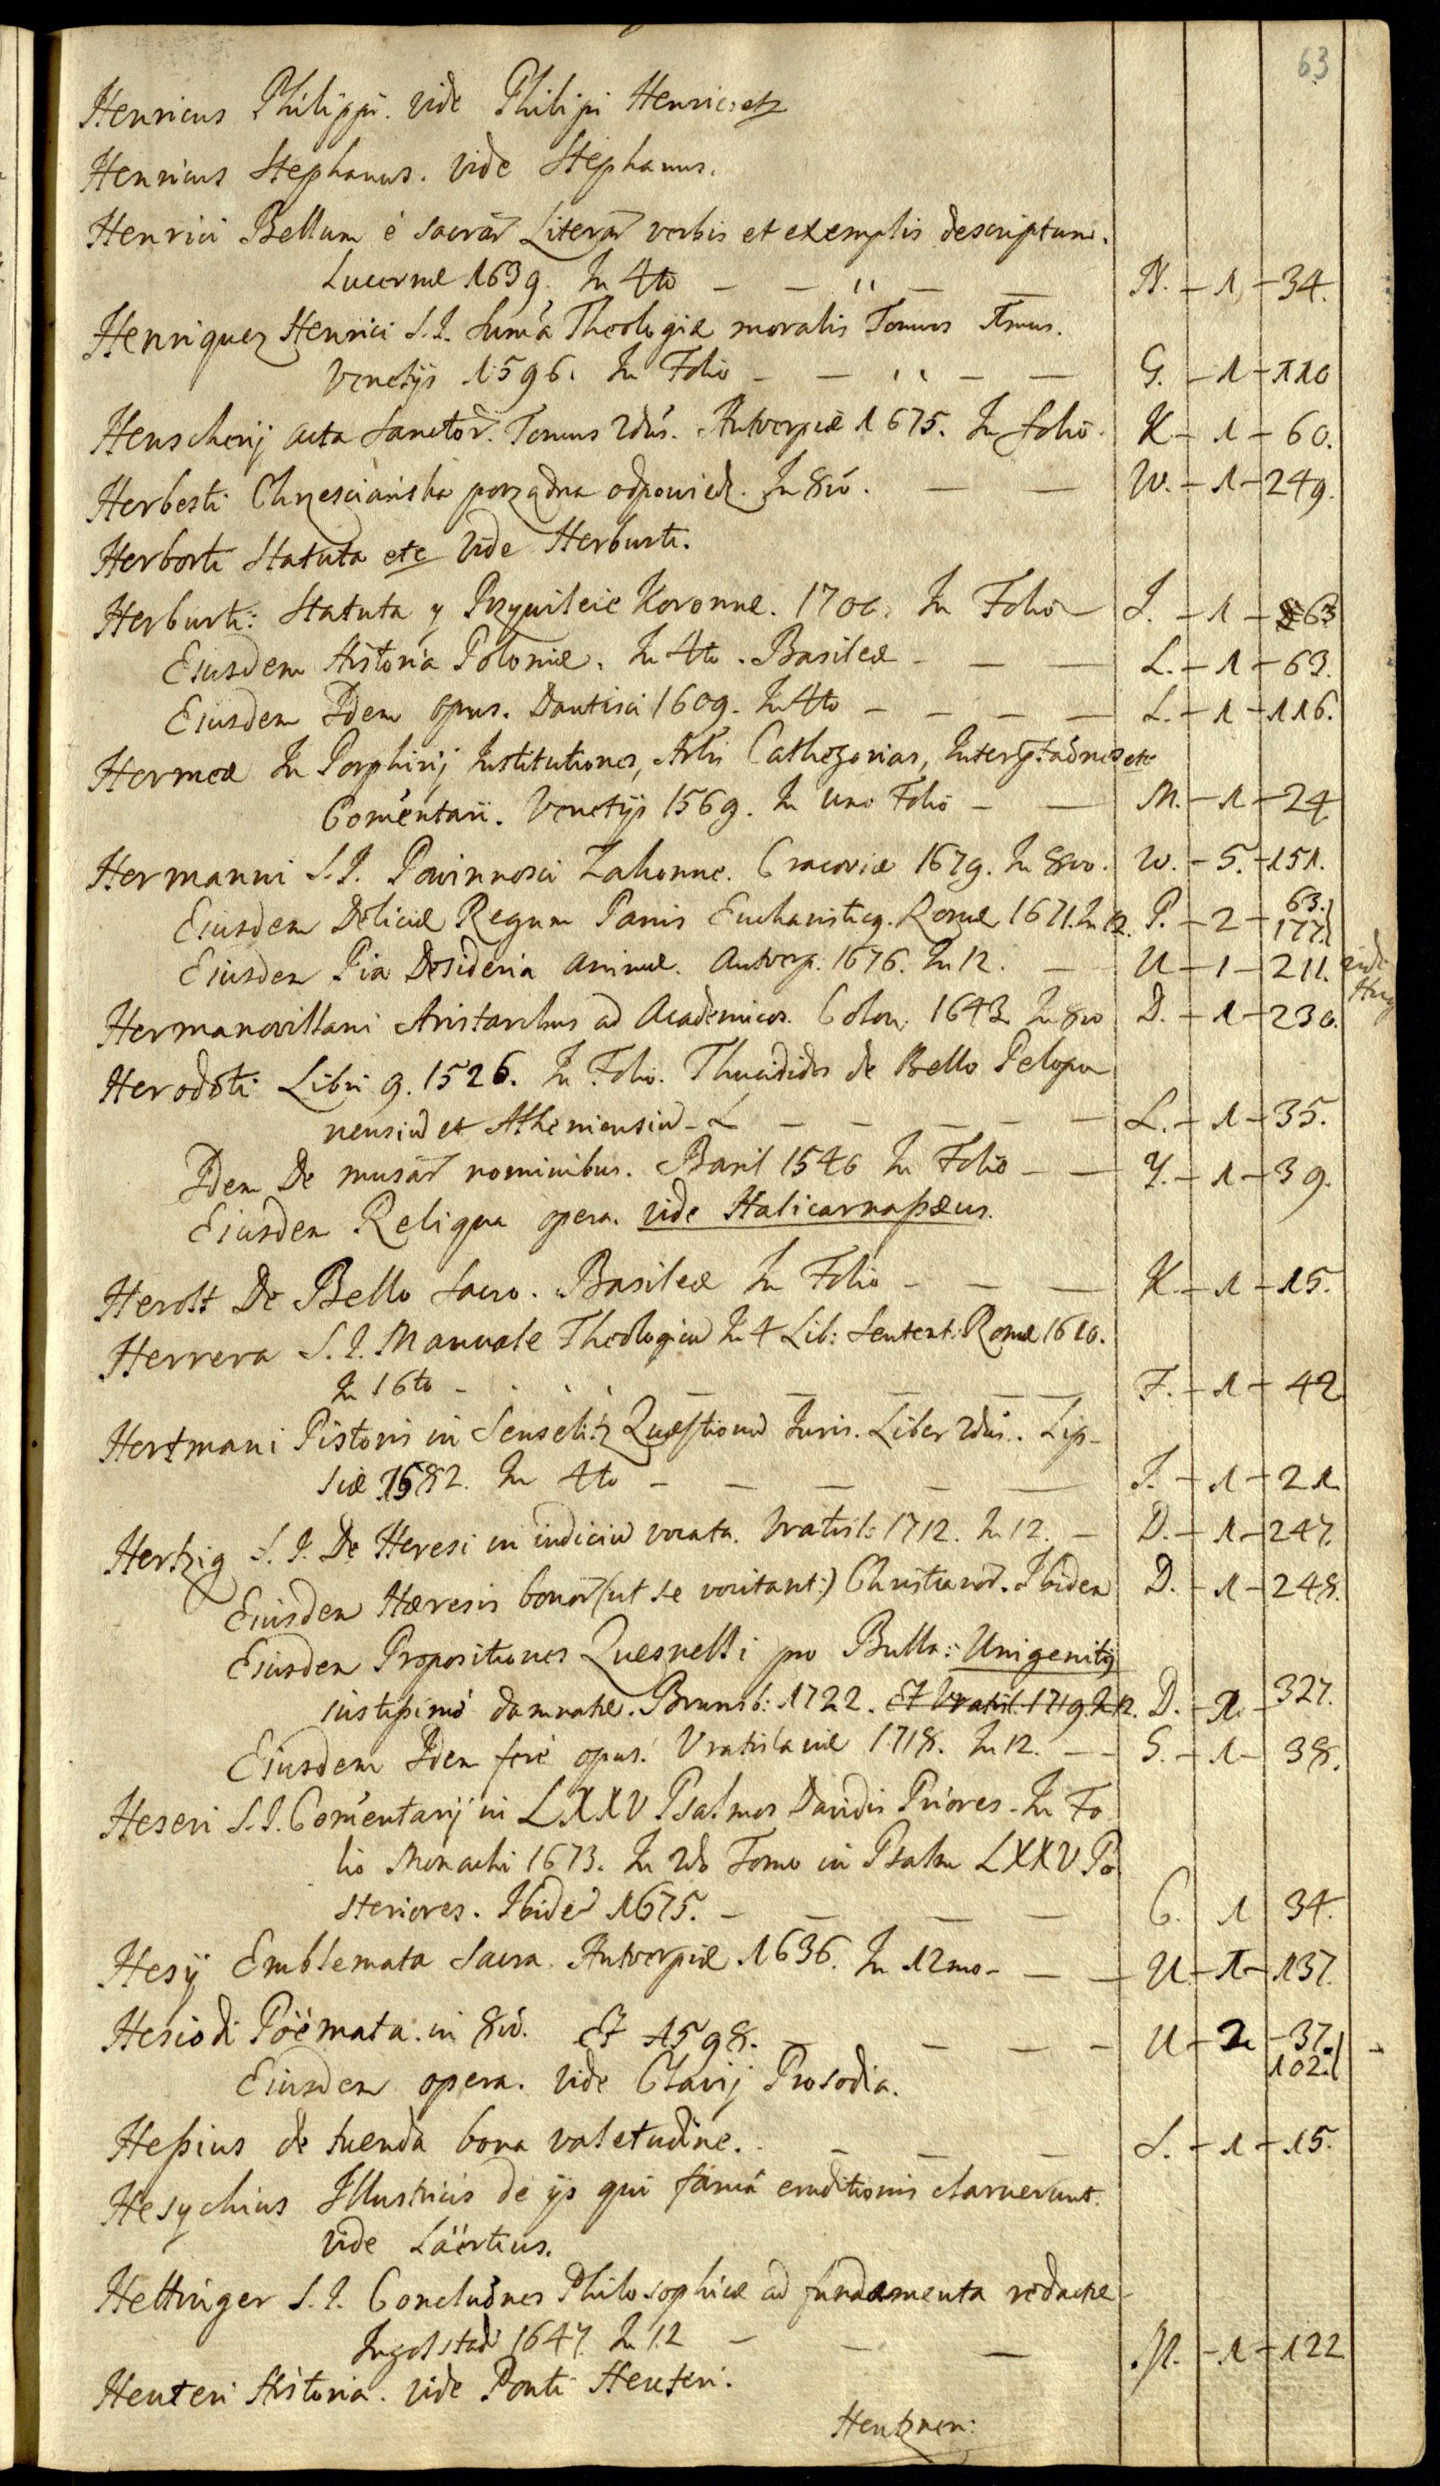 63
Henricus Philippi. vide Philipi Henrici etc
Henricus Stephanus. vide Stephanus.
Henrici Bellum è sacrar̃ Literar̃ verbis et exemplis descriptum.
Lucernæ 1639. In 4to — — " — — N. - 1 - 34.
Henriquez Henrici S.I. Sum̃a Theologiæ moralis Tomus 1mus.
Venetijs 1596. In Folio — — " — — G. - 1 - 110
Henschenij acta Sanctor̃. Tomus 2dus. Antverpiæ 1675. In folio. K - 1 - 60.
Herbesti Chrzescianska porządna odpowiedz. In 8vo. — — W. - 1 - 249.
Herborti Statuta etc vide Herburti.
Herburti: Statuta y Przywileie Koronne. 1700. In Folio — I. - 1 - 63
Eiusdem Historia Poloniæ. In 4to. Basileæ — — — L. - 1 - 63.
Eiusdem Idem opus. Dantisci 1609. In 4to — — — — L. - 1 - 116.
Hermeæ In Porphirij Institutiones, Artis Cathegorias, Interp̃tãones etc
Com̃entarii. Venetijs 1569. In uno Folio — — M. - 1 - 24
Hermanni S.I. Powinnosci Zakonne. Cracoviæ 1679. In 8vo. W. - 5. - 151.
Eiusdem Deliciæ Regum Panis Eucharisticq. Romæ 1671. In 12. P. - 2 - 63. 177.
Eiusdem Pia Desideria animæ. Antverp. 1676. In 12. — U - 1 - 211. vide Hug
Hermanovillani Aristarchus ad Academicos. Colon: 1643. In 8vo D. - 1 - 230.
Herodoti Libri 9. 1526. In Folio. Thucidides de Bello Pelopon
nensiũ et Atheniensiũ - L — — — — — L. - 1 - 35.
Idem De musar̃ nominibus. Basil 1546 In Folio — — Y. - 1 - 39.
Eiusdem Reliqua opera. vide Halicarnaßæus.
Herolt De Bello Sacro. Basileæ In Folio — — — K - 1 - 15.
Herrera S.I. Manuale Theologicũ In 4 Lib: Sentent: Romæ 1610.
In 16to — — — — — — F. - 1 - 42
Hertmani Pistoris in Senselitz Quæstionũ Iuris. Liber 2dus. Lip-
siæ 1582. In 4to — — — — — I. - 1 - 21
Hertzig S.I. De Heresi in iudiciũ vocata. Vratisl: 1712. In 12. — D. - 1 - 247.
Eiusdem Hæresis bonor̃ (ut se vocitant:) Christianor̃. Ibidem D. - 1 - 248.
Eiusdem Propositiones Quesnelli pro Bulla: Unigenitq
iustißimè damnatæ. Brunsb: 1722. Et Vratisl. 1719. In 12. D. - 1. - 327.
Eiusdem Idem ferè opus. Vratislaviæ 1718. In 12. — — S. - 1 - 38.
Heseri S.I. Com̃entarij in LXXV Psalmos Davidis Priores. In Fo
lio Monachi 1673. In 2do Tomo in Psalm LXXV Po
steriores. Ibidẽ 1675. — — — — C. 1 34.
Hesij Emblemata Sacra. Antverpiæ 1636. In 12mo — — — U - 1 - 137.
Hesiodi Pöëmata. in 8vo. Et 1598. — — — — U - 2 - 37. 102.
Eiusdem opera. vide Clavij Prosodia.
Heßius de tuenda bona valetudine. — — — S. - 1 - 15.
Hesychius Illustrius de ijs qui famâ eruditionis claruerunt.
vide Läertius.
Hettinger S.I. Conclusẽones Philosophicæ ad fundamenta redactæ —
Ingolstad 1647. In 12 — — — N. - 1 - 122
Heuteri Historia. vide Ponti Heuteri.
Heutzneri: